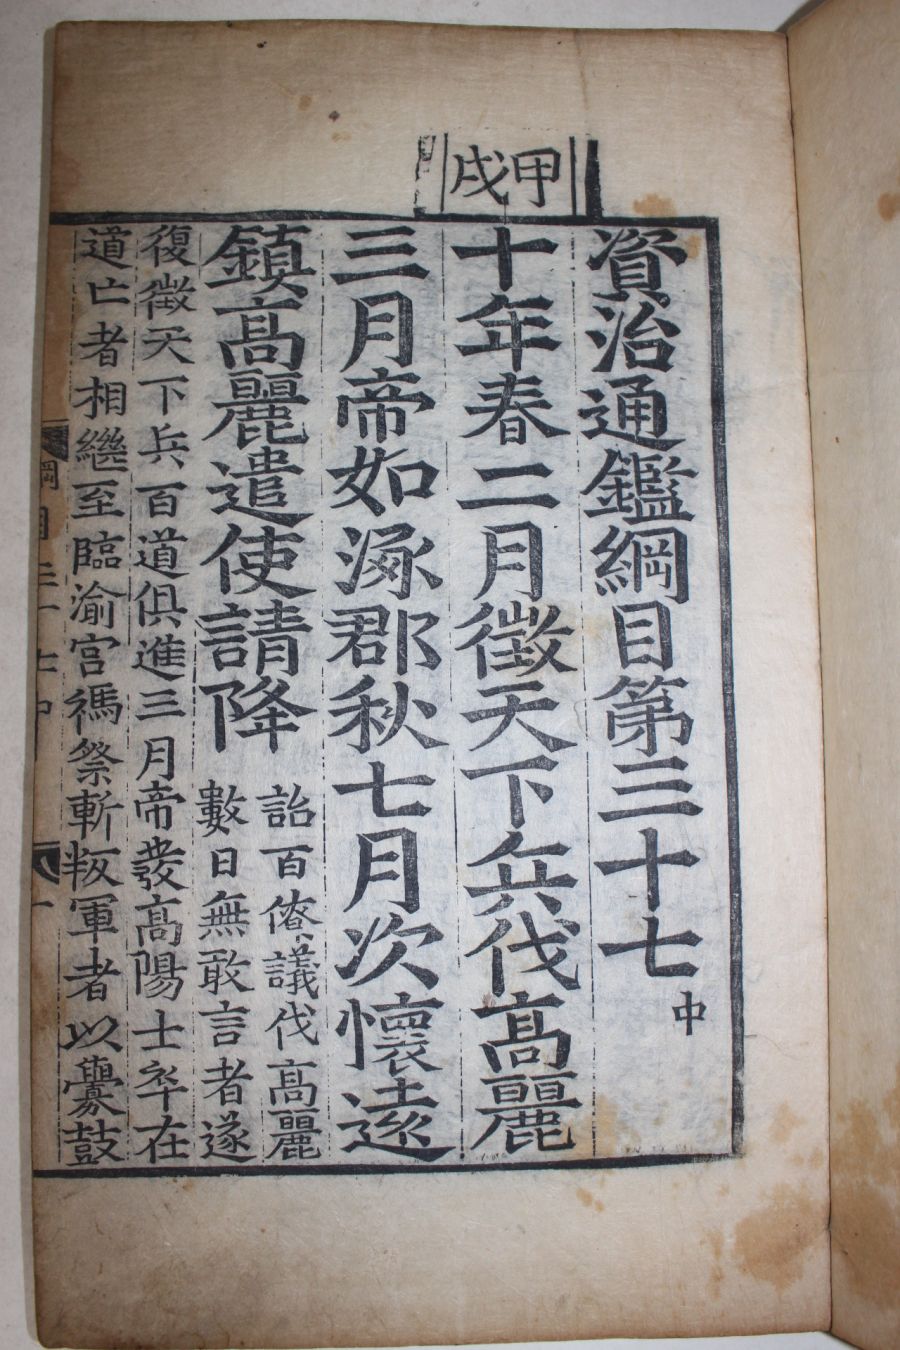 甲戌
資治通鑑綱目第三十七中
十年春二月徵天下兵伐髙麗
三月帝如涿郡秋七月次懷遠
鎮髙麗遣使請降
詒百僚議伐髙麗
數日無敢言者遂
復徵天下兵百道俱進三月帝發髙陽士卒在
道亡者相繼至臨渝宮禡祭斬叛軍者以釁鼓
綱目三十七中
一